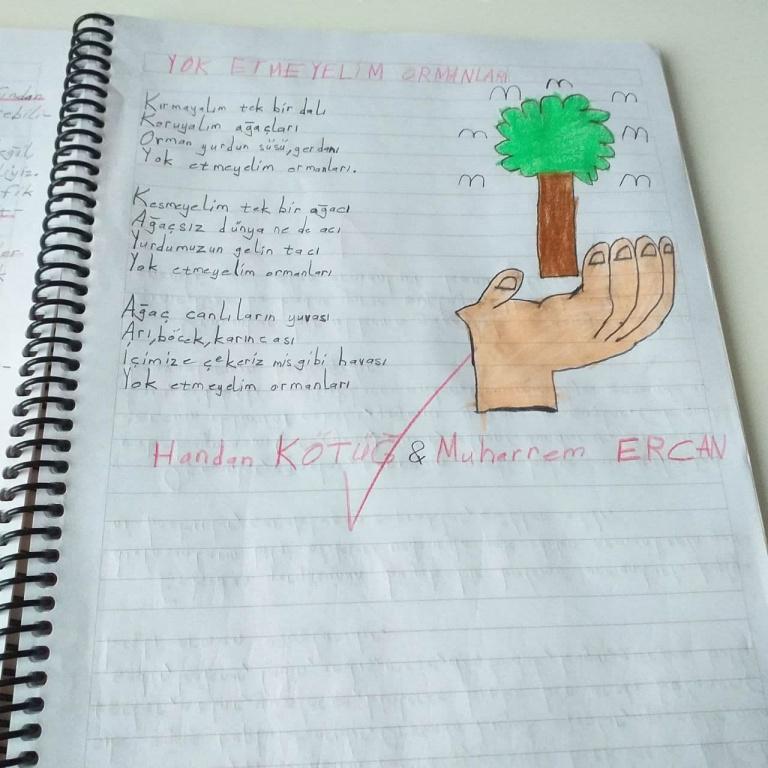 YOK ETMEYELİM ORMANLARI
Kırmayalım tek bir dalı
Koruyalım ağaçları
Orman yurdun süsü, gerdanı
Yok etmeyelim ormanları.
Kesmeyelim tek bir ağacı
Ağaçsız dünya ne de acı
Yurdumuzun gelin tacı
Yok etmeyelim ormanları
Ağaç canlıların yuvası
Arı, böcek, karıncası
İçimize çekeriz mis gibi havası
Yok etmeyelim ormanları
Handan KÖTÜĞ & Muharrem ERCAN